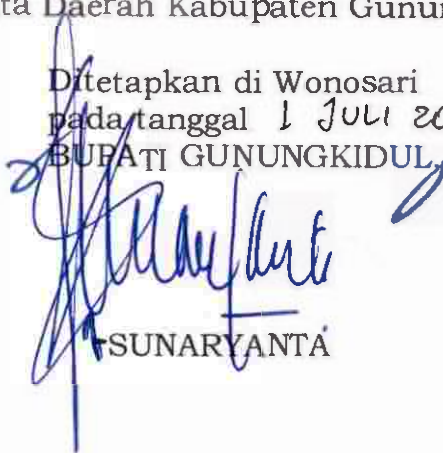 ta Daerah Kabupaten Gunun
Ditetapkan di Wonosari
pada tanggal 1 JULI 20
BUPATI GUNUNGKIDUL,
SUNARYANTA